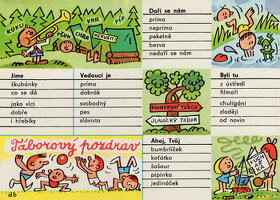 KUKU
VRR
PÍP
PŠUK
CINK
KRUCI!!
Daří se nám
prima
neprima
pekelně
bezva
nedaří se nám
Jíme
škubánky
co se dá
jako vlci
dobře
i hřebíky
Vedoucí je
prima
dobrák
svobodný
pes
slávista
PIONÝRSKÝ TÁBOR
JUNÁCKÝ TÁBOR
Byli tu
z ústředí
filmaři
chuligáni
zloději
od novin
Táborový pozdrav
Ahoj, Tvůj
bumbrlíček
koťátko
šašour
pipinka
jedináček